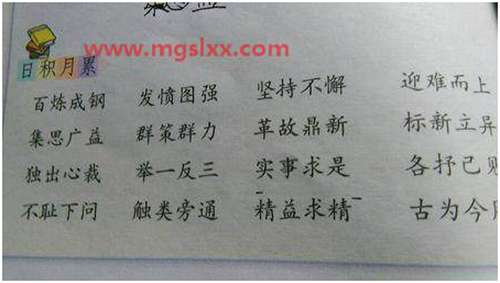 www.mgslxx.com
日积月累
百炼成钢 发愤图强 坚持不懈 迎难而上
集思广益 群策群力 革故鼎新 标新立异
独出心裁 举一反三 实事求是 各抒己
不耻下问 触类旁通 精益求精 古为今